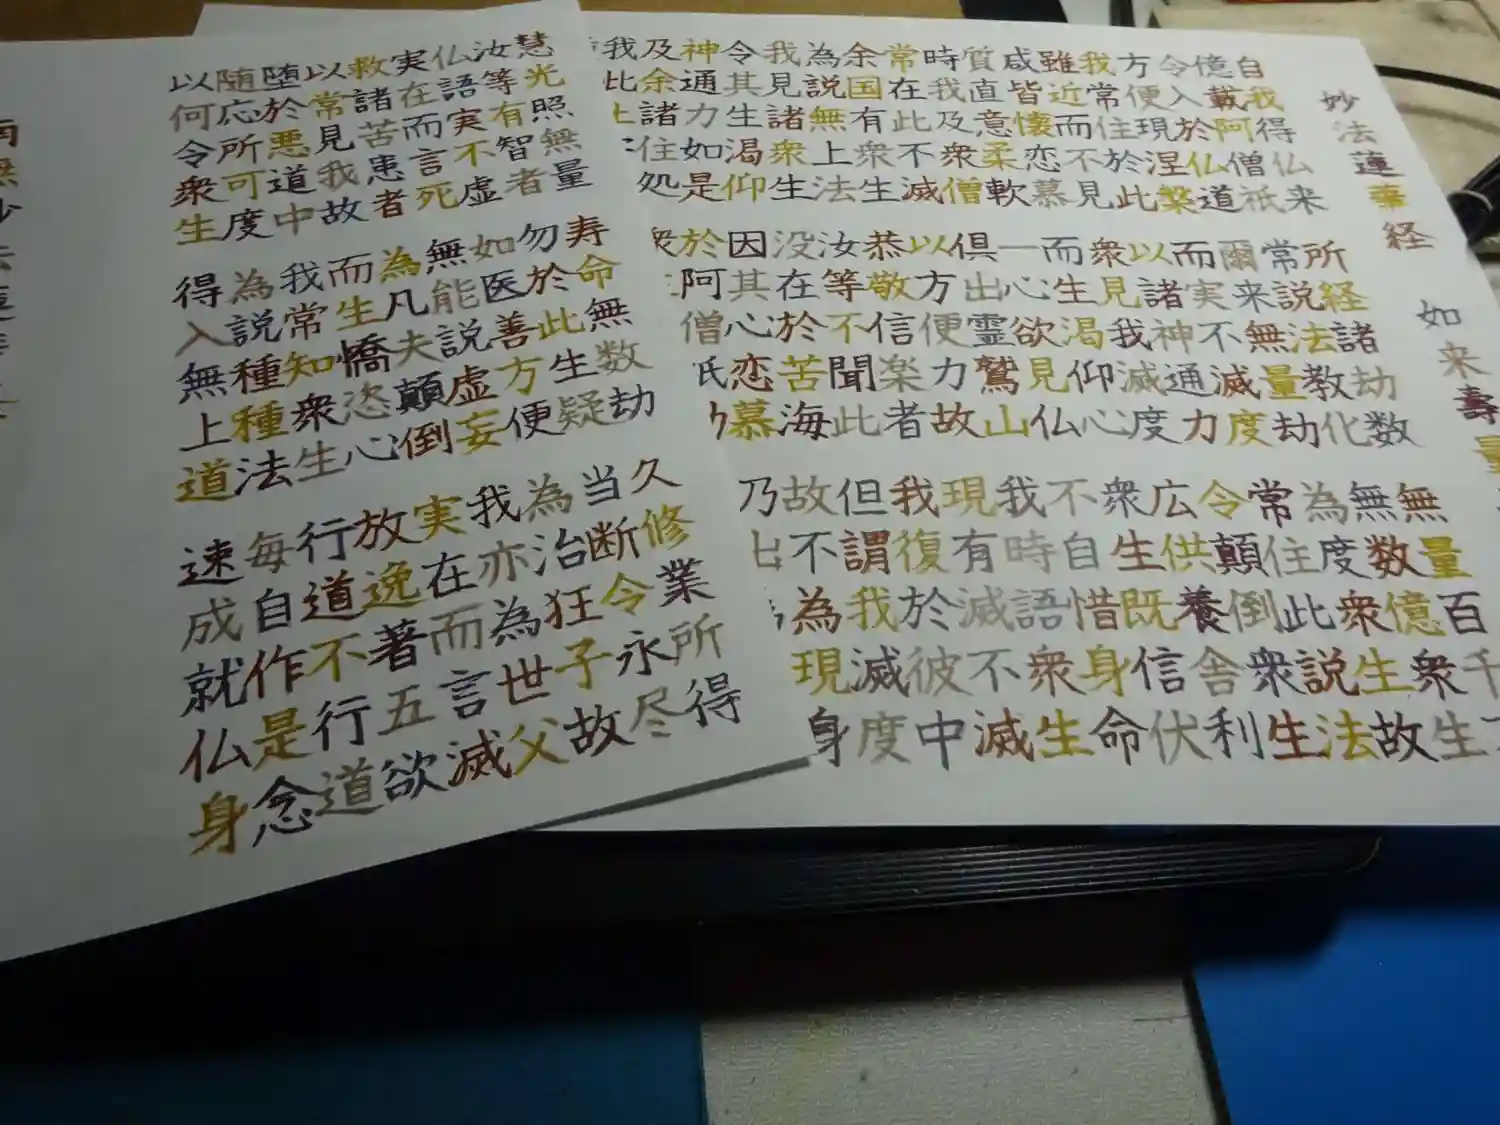 妙法蓮華経 如来壽量
自我得仏来 所経諸劫数 無量百千
億載阿僧祇 常説法教化 無数億衆生
令入於仏道 爾来無量劫 為度衆生故
方便現涅槃 而実不滅度 常住此説法
我常住於此 以諸神通力 令顛倒衆生
雖近而不見 衆見我滅度 広供養舎利
咸皆懐恋慕 而生渇仰心 衆生既信伏
質直意柔軟 一心欲見仏 不自惜身命
時我及衆僧 倶出霊鷲山 我時語衆生
常在此不滅 以方便力故 現有滅不滅
余国有衆生 恭敬信楽者 我復於彼中
為説無上法 汝等不聞此 但謂我滅度
我見諸衆生 没在於苦海 故不為現身
令其生渇仰 因其心恋慕 乃出為
神通力如是 於阿僧
及余諸住処 衆
我此土
慧光照無量 寿命無数劫 久修業所得
汝等有智者 勿於此生疑 当断令永尽
仏語実不虚 如医善方便 為治狂子故
実在而言死 無能説虚妄 我亦為世父
救諸苦患者 為凡夫顛倒 実在而言滅
以常見我故 而生憍恣心 放逸著五欲
堕於悪道中 我常知衆生 行道不行道
随応所可度 為説種種法 毎自作是念
以何令衆生 得入無上道 速成就仏身